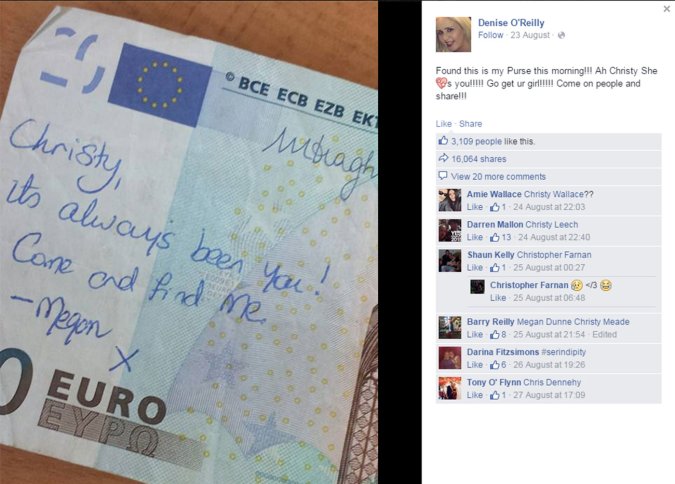 © BCE ECB EZB EKT
Christy,
its always been you!
Come and find me.
- Megan X
EURO
ΕΥΡΩ
Denise O'Reilly
Follow · 23 August ·
Found this is my Purse this morning!!! Ah Christy She
💖s you!!!!! Go get ur girl!!!!! Come on people and
share!!!
Like · Share
3,109 people like this.
16,064 shares
View 20 more comments
Amie Wallace Christy Wallace??
Like · 1 · 24 August at 22:03
Darren Mallon Christy Leech
Like · 13 · 24 August at 22:40
Shaun Kelly Christopher Farnan
Like · 1 · 25 August at 00:27
Christopher Farnan 😢 </3 😂
Like · 25 August at 06:48
Barry Reilly Megan Dunne Christy Meade
Like · 8 · 25 August at 21:54 · Edited
Darina Fitzsimons #serindipity
Like · 6 · 26 August at 19:26
Tony O' Flynn Chris Dennehy
Like · 1 · 27 August at 17:09